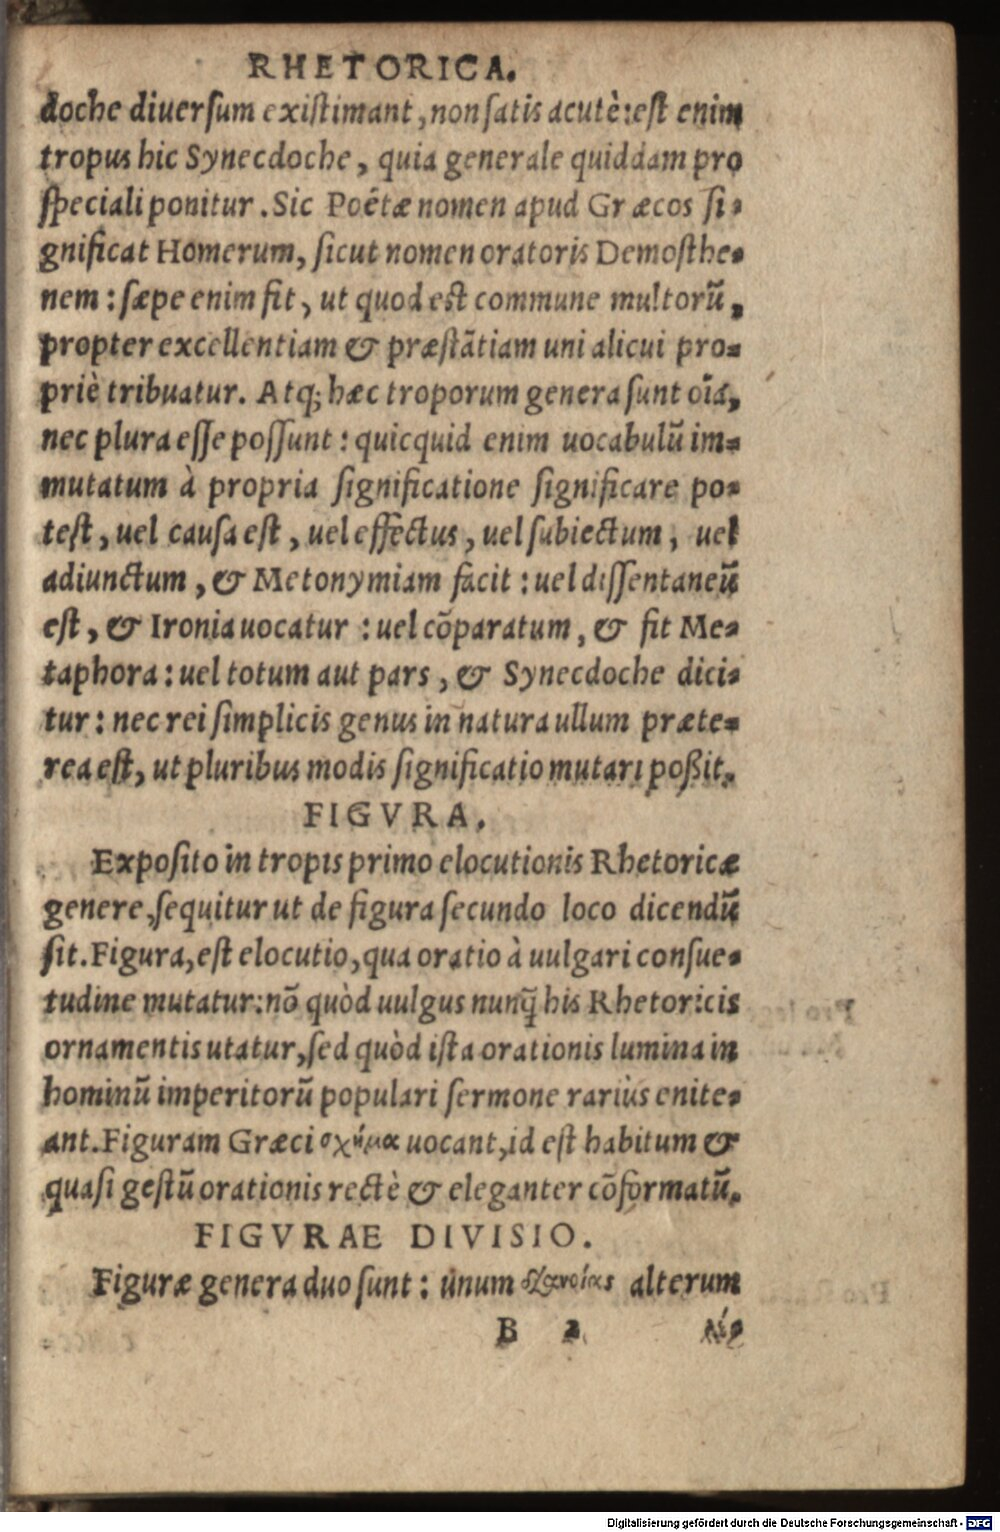 RHETORICA.
doche diuersum existimant, non satis acutè: est enim
tropus hic Synecdoche, quia generale quiddam pro
speciali ponitur. Sic Poëtæ nomen apud Græcos si-
gnificat Homerum, sicut nomen oratoris Demosthe-
nem: sæpe enim fit, ut quod est commune multorũ,
propter excellentiam & præstãtiam uni alicui pro-
priè tribuatur. Atq; hæc troporum genera sunt oĩa,
nec plura esse possunt: quicquid enim uocabulũ im-
mutatum à propria significatione significare po-
test, uel causa est, uel effectus, uel subiectum, uel
adiunctum, & Metonymiam facit: uel dissentaneũ
est, & Ironia uocatur: uel cõparatum, & fit Me-
taphora: uel totum aut pars, & Synecdoche dici-
tur: nec rei simplicis genus in natura ullum præte-
rea est, ut pluribus modis significatio mutari poßit.
FIGVRA.
Exposito in tropis primo elocutionis Rhetoricæ
genere, sequitur ut de figura secundo loco dicendũ
sit. Figura, est elocutio, qua oratio à uulgari consue-
tudine mutatur: nõ quòd uulgus nunq̃ his Rhetoricis
ornamentis utatur, sed quòd ista orationis lumina in
hominũ imperitorũ populari sermone rariùs enite-
ant. Figuram Græci σχῆμα uocant, id est habitum &
quasi gestũ orationis rectè & eleganter cõformatũ.
FIGVRAE DIVISIO.
Figuræ genera duo sunt: unum διανοίας alterum
B 2 λέ
Digitalisierung gefördert durch die Deutsche Forschungsgemeinschaft - DFG